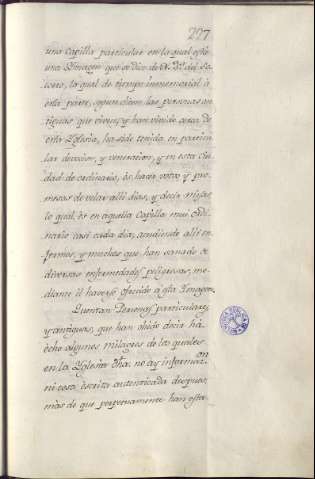 297
una Capilla particular en la qual esta
una Ymagen que se dice de N. Sª. del So-
corro, la qual de tiempo inmemorial à
esta parte, segun dicen las personas an-
tiguas que viven, y han vivido cerca de
esta Yglesia, ha sido tenida en particu-
lar devocion, y veneracion, y en esta Ciu-
dad de ordinario, es hacer votos y pro-
mesas de velar alli dias, y decir misas,
lo qual es en aquella Capilla mui ordi-
nario casi cada dia, acudiendo alli en-
fermos, y muchos que han sanado de
diversas enfermedades peligrosas, me-
diante el haverse ofrecido à esta Ymagen.
Cuentan Personas particulares,
y antiguas, que han oido decir há
echo algunos milagros de los quales
en la Yglesia dha. no ay informaz.on
ni cosa escrita autenticada de que
mas de que perpetuamente han esta-